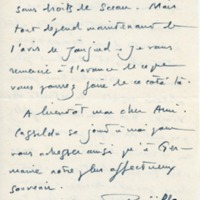 sans droits de Sceau. Mais
tout dépend maintenant de
l'avis de Je vous
remercie à l'avance de ce que
vous pourrez faire de ce côté là.
A bientôt mon cher Ami.
se joint à moi pour
vous adresser ainsi qu'à Ger-
maine notre plus affectueux
souvenir.